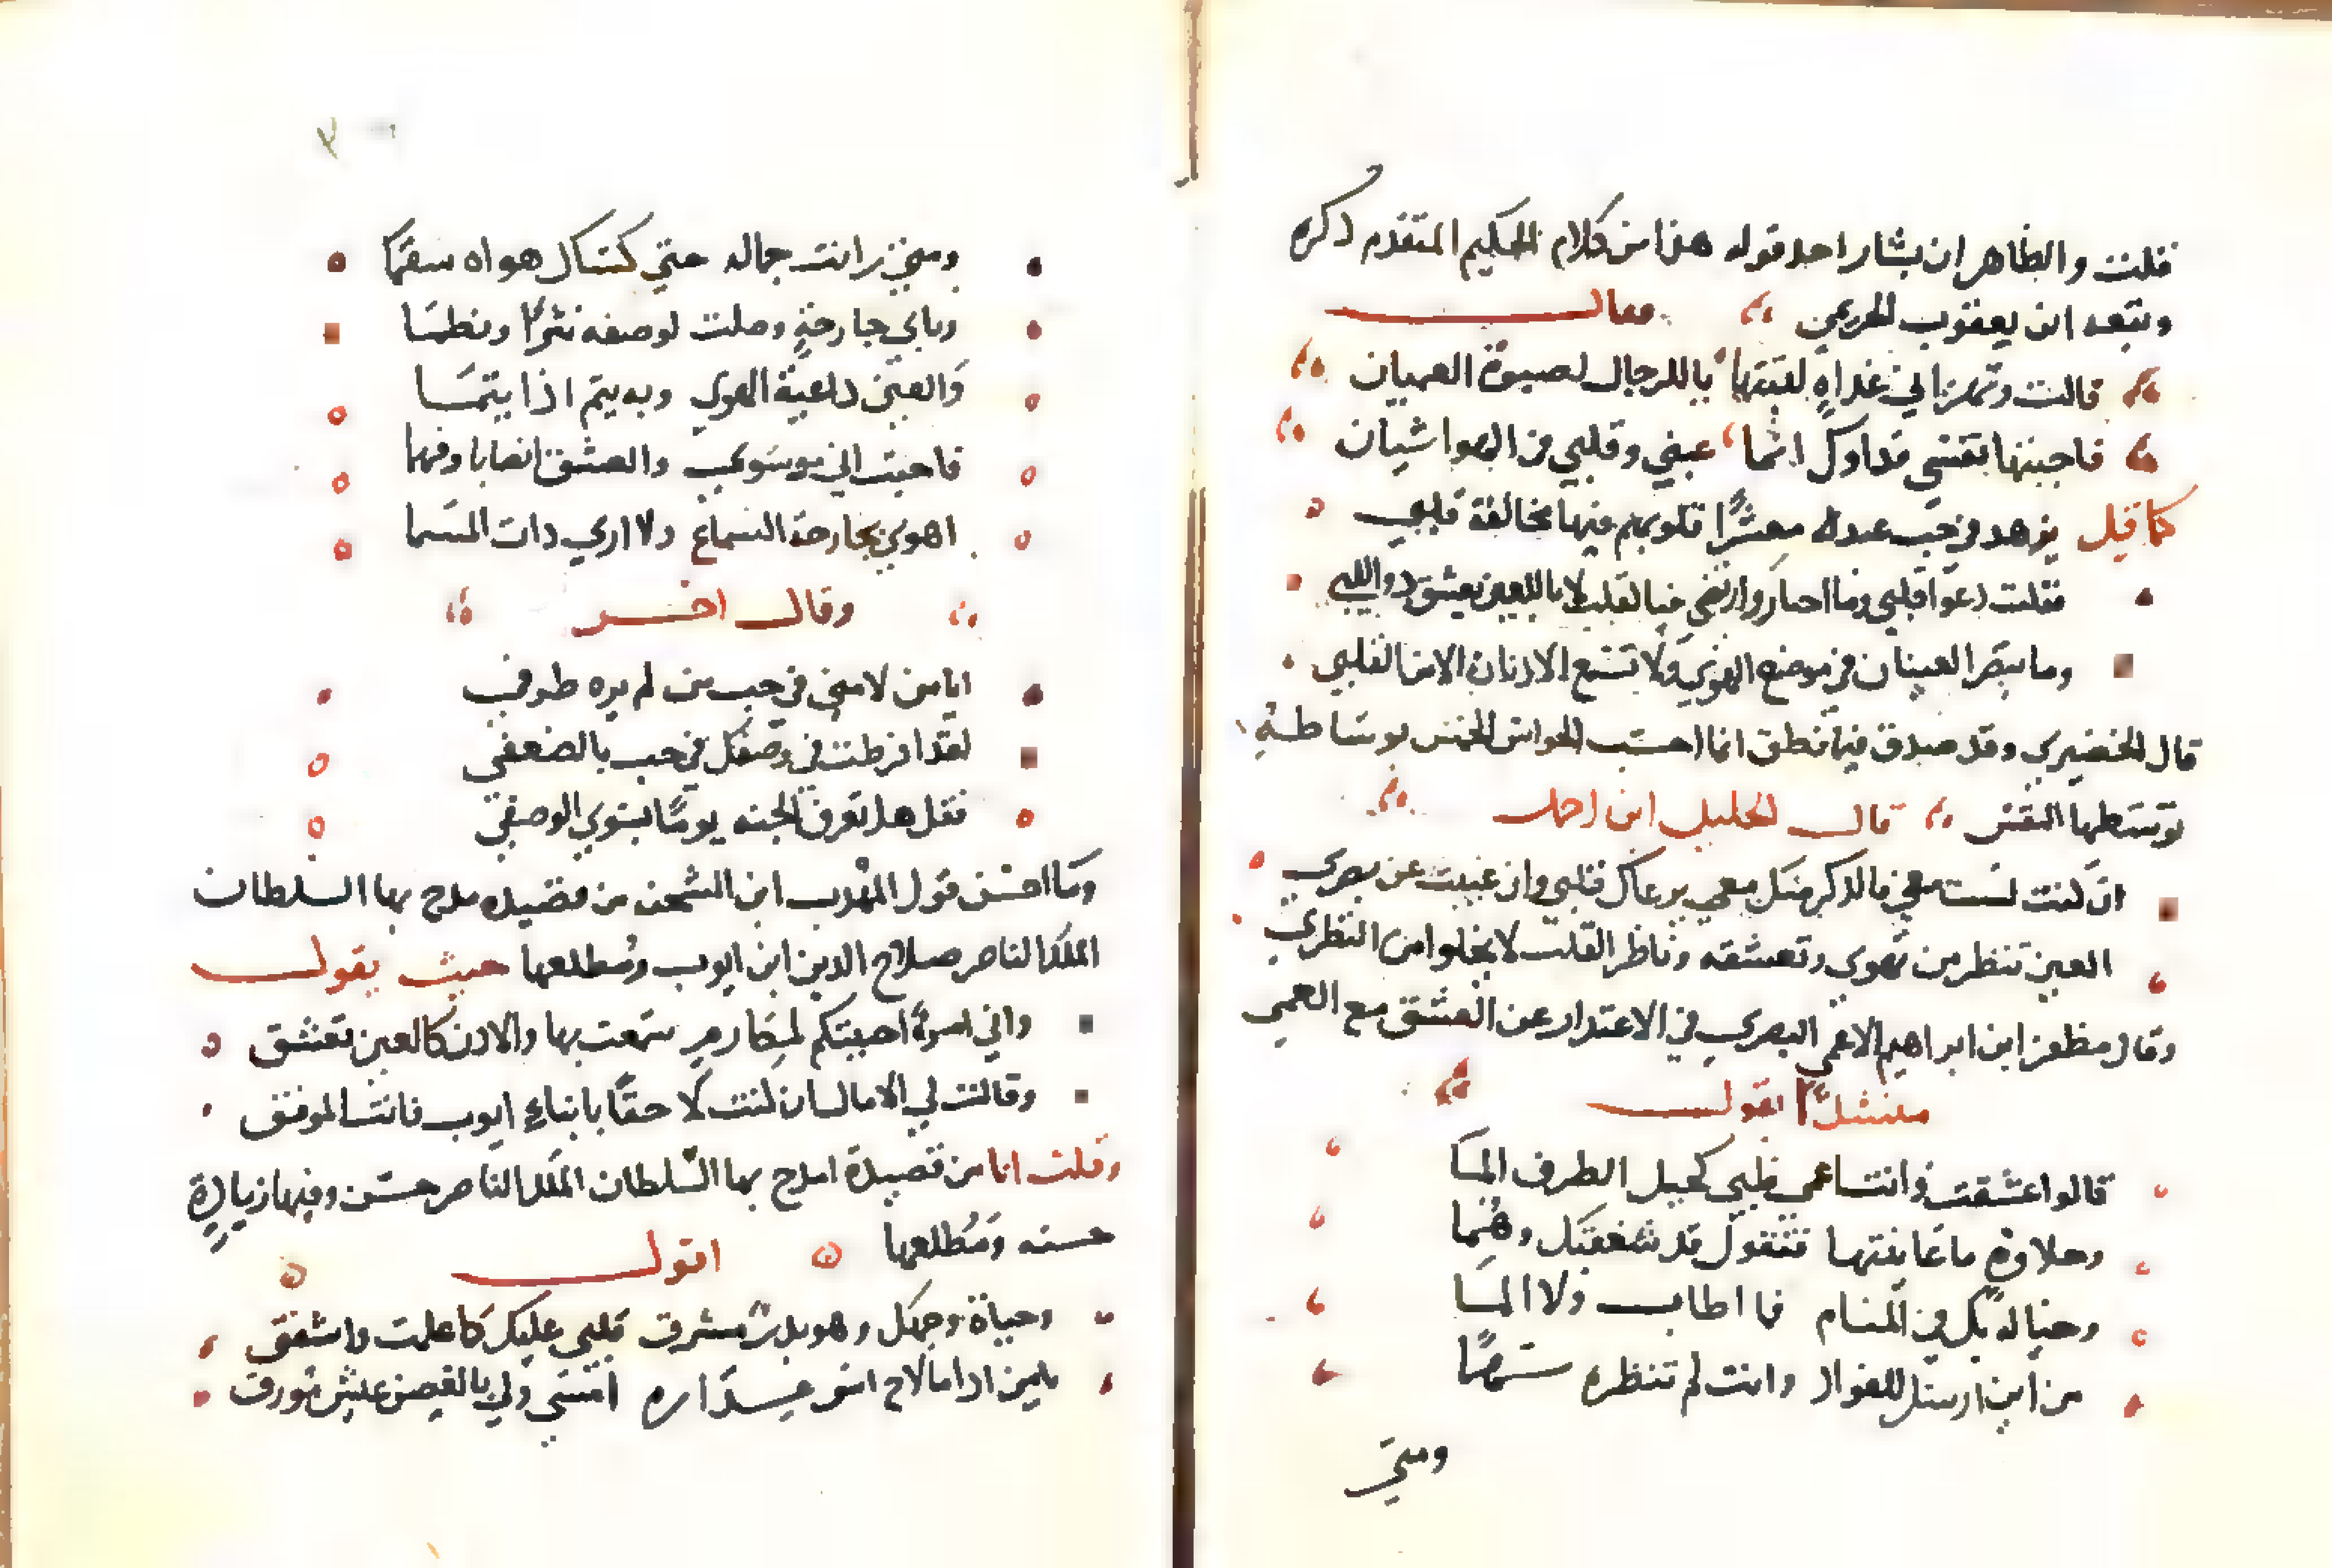 قلت والظاهر ان بشارا اخد قوله هذا من كلام الحكيم المتقدم دكره
وتبعه ابن يعقوب الخريمي فقال
قالت وتهزا بي غداة لقيتها يا للرجال لصبوة العميان
فاجبتها نفسي فداوك انما عيني وقلبي في الهوا شيان
كما قيل يزهد في حب عبده معشرًا قلوبهم فيها مخالفة قلبي
فقلت دعوا قلبي وما احتار وارتضي فبالقلب لا بالعين يعشق دو اللبي
وما تبصر العينان في موضع الهوي ولا تسمع الادنان الا من القلبي
قال الحضيري وقد صدق فيما نطق انما احسب الحواس الخمس بوساطته
توسطها النفس قال الخليل ابن احمد
ان كنت لست معي فالدكر منك معي يرعاك قلبي وان غيبت عن بصري
العين تنظر من تهوي وتعشقه وناظر القلب لا يخلوا من النظري
وقال مظفر ابن ابراهيم الاعمي البصري في الاعتدار عن العشق مع العمي
منشدًا يقول
قالوا عشقت وانت اعمي ظبي كحيل الطرف المـا
وحلاوة ما عاينتها فتقول قد شغفتك وهما
وخياله بك في المنام فما اطاب ولا المـا
من اين ارسل للفواد وانت لم تنظره سهمًا
ومتي
ومتي رانت جماله حتي كساك هواه سقما
وباي جارحة وصلت لوصفه نثرًا ونظما
والعين داعية الهوي وبه يتم اذا يتمـا
فاجبت اني موسوي العشق انصاتا وفهما
اهوي بجارحة السماع ولا اري دات المسما
وقال اخر
ايا من لامني في حب من لم يره طرفي
لقد افرطت في وصفك في حب بالضعفي
فقل هل تعرف الجنه يومًا بسوي الوصفي
وما احسن قول المهدب ابن الشحنه من قصيده مدح بها السلطان
الملك الناصر صلاح الدين ابن ايوب ومطلعها حيث يقول
واني امرؤ احببتكم لمكارم سمعت بها والادن كالعين تعشق
وقالت لي الامال ان كنت لا حقًا بابناء ايوب فانت الموفق
وقلت انا من قصيدة امدح بها السلطان الملك الناصر حسن وفيها زيادة
حسنه ومطلعها اقول
وحياة وجهك وهو بدر مشرق قلبي عليك كما علمت واشفق
يا من ادا ما لاح اس عداره امسي ولي بالغصن عيش مورق